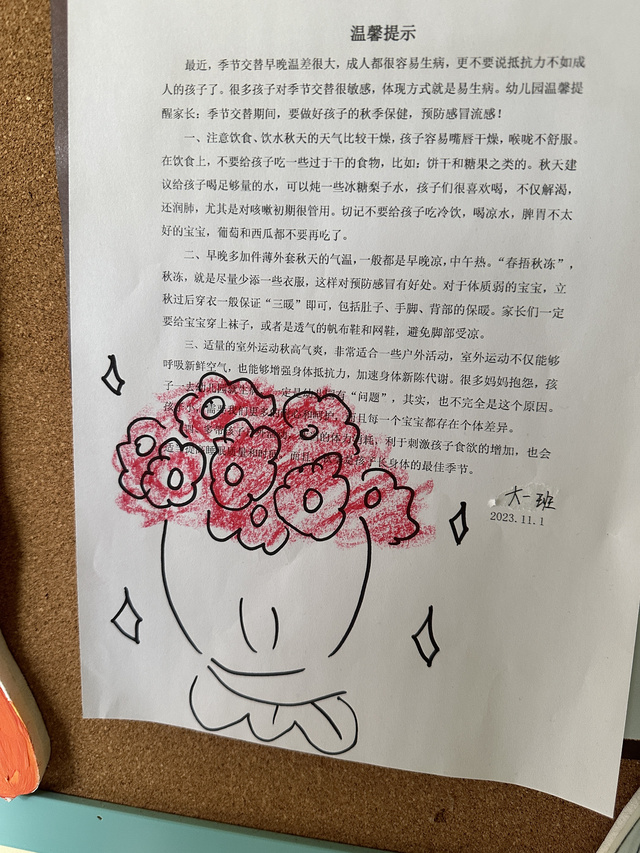 温馨提示
最近，季节交替早晚温差很大，成人都很容易生病，更不要说抵抗力不如成
人的孩子了。很多孩子对季节交替很敏感，体现方式就是易生病。幼儿园温馨提
醒家长：季节交替期间，要做好孩子的秋季保健，预防感冒流感！
一、注意饮食、饮水秋天的天气比较干燥，孩子容易嘴唇干燥，喉咙不舒服。
在饮食上，不要给孩子吃一些过于干的食物，比如：饼干和糖果之类的。秋天建
议给孩子喝足够量的水，可以炖一些冰糖梨子水，孩子们很喜欢喝，不仅解渴，
还润肺，尤其是对咳嗽初期很管用。切记不要给孩子吃冷饮，喝凉水，脾胃不太
好的宝宝，葡萄和西瓜都不要再吃了。
二、早晚多加件薄外套秋天的气温，一般都是早晚凉，中午热。“春捂秋冻”，
秋冻，就是尽量少添一些衣服，这样对预防感冒有好处。对于体质弱的宝宝，立
秋过后穿衣一般保证“三暖”即可，包括肚子、手脚、背部的保暖。家长们一定
要给宝宝穿上袜子，或者是透气的帆布鞋和网鞋，避免脚部受凉。
三、适量的室外运动秋高气爽，非常适合一些户外活动，室外运动不仅能够
呼吸新鲜空气，也能够增强身体抵抗力，加速身体新陈代谢。很多妈妈抱怨，孩
子一去 一定是 有“问题”，其实，也不完全是这个原因。
而且每一个宝宝都存在个体差异。
消耗，利于刺激孩子食欲的增加，也会
孩子长身体的最佳季节。
大一班
2023.11.1